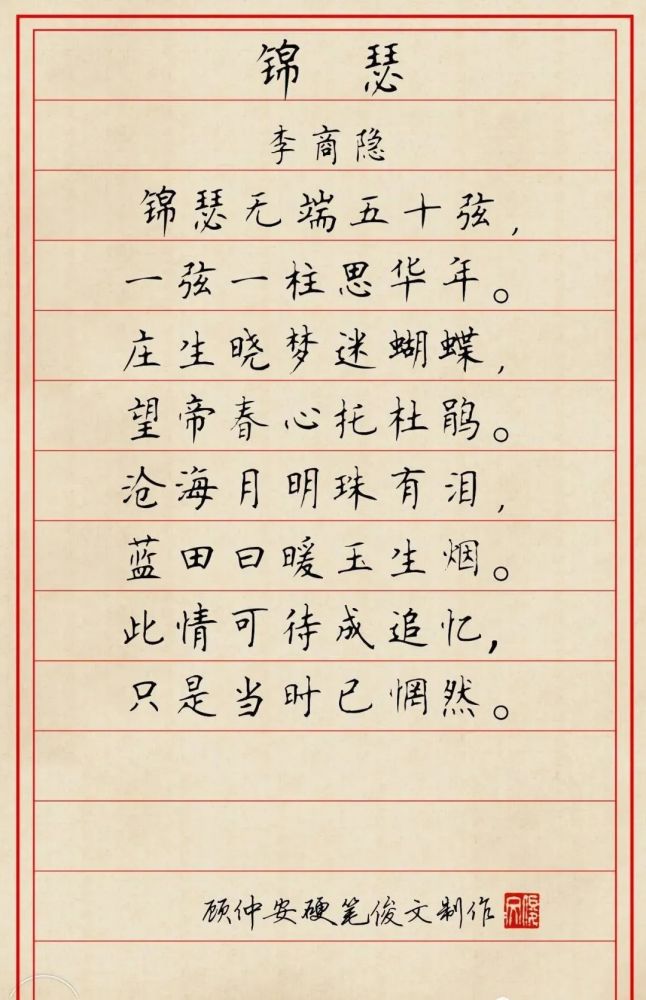 锦瑟
李商隐
锦瑟无端五十弦，
一弦一柱思华年。
庄生晓梦迷蝴蝶，
望帝春心托杜鹃。
沧海月明珠有泪，
蓝田日暖玉生烟。
此情可待成追忆，
只是当时已惘然。
顾仲安硬笔俊文制作